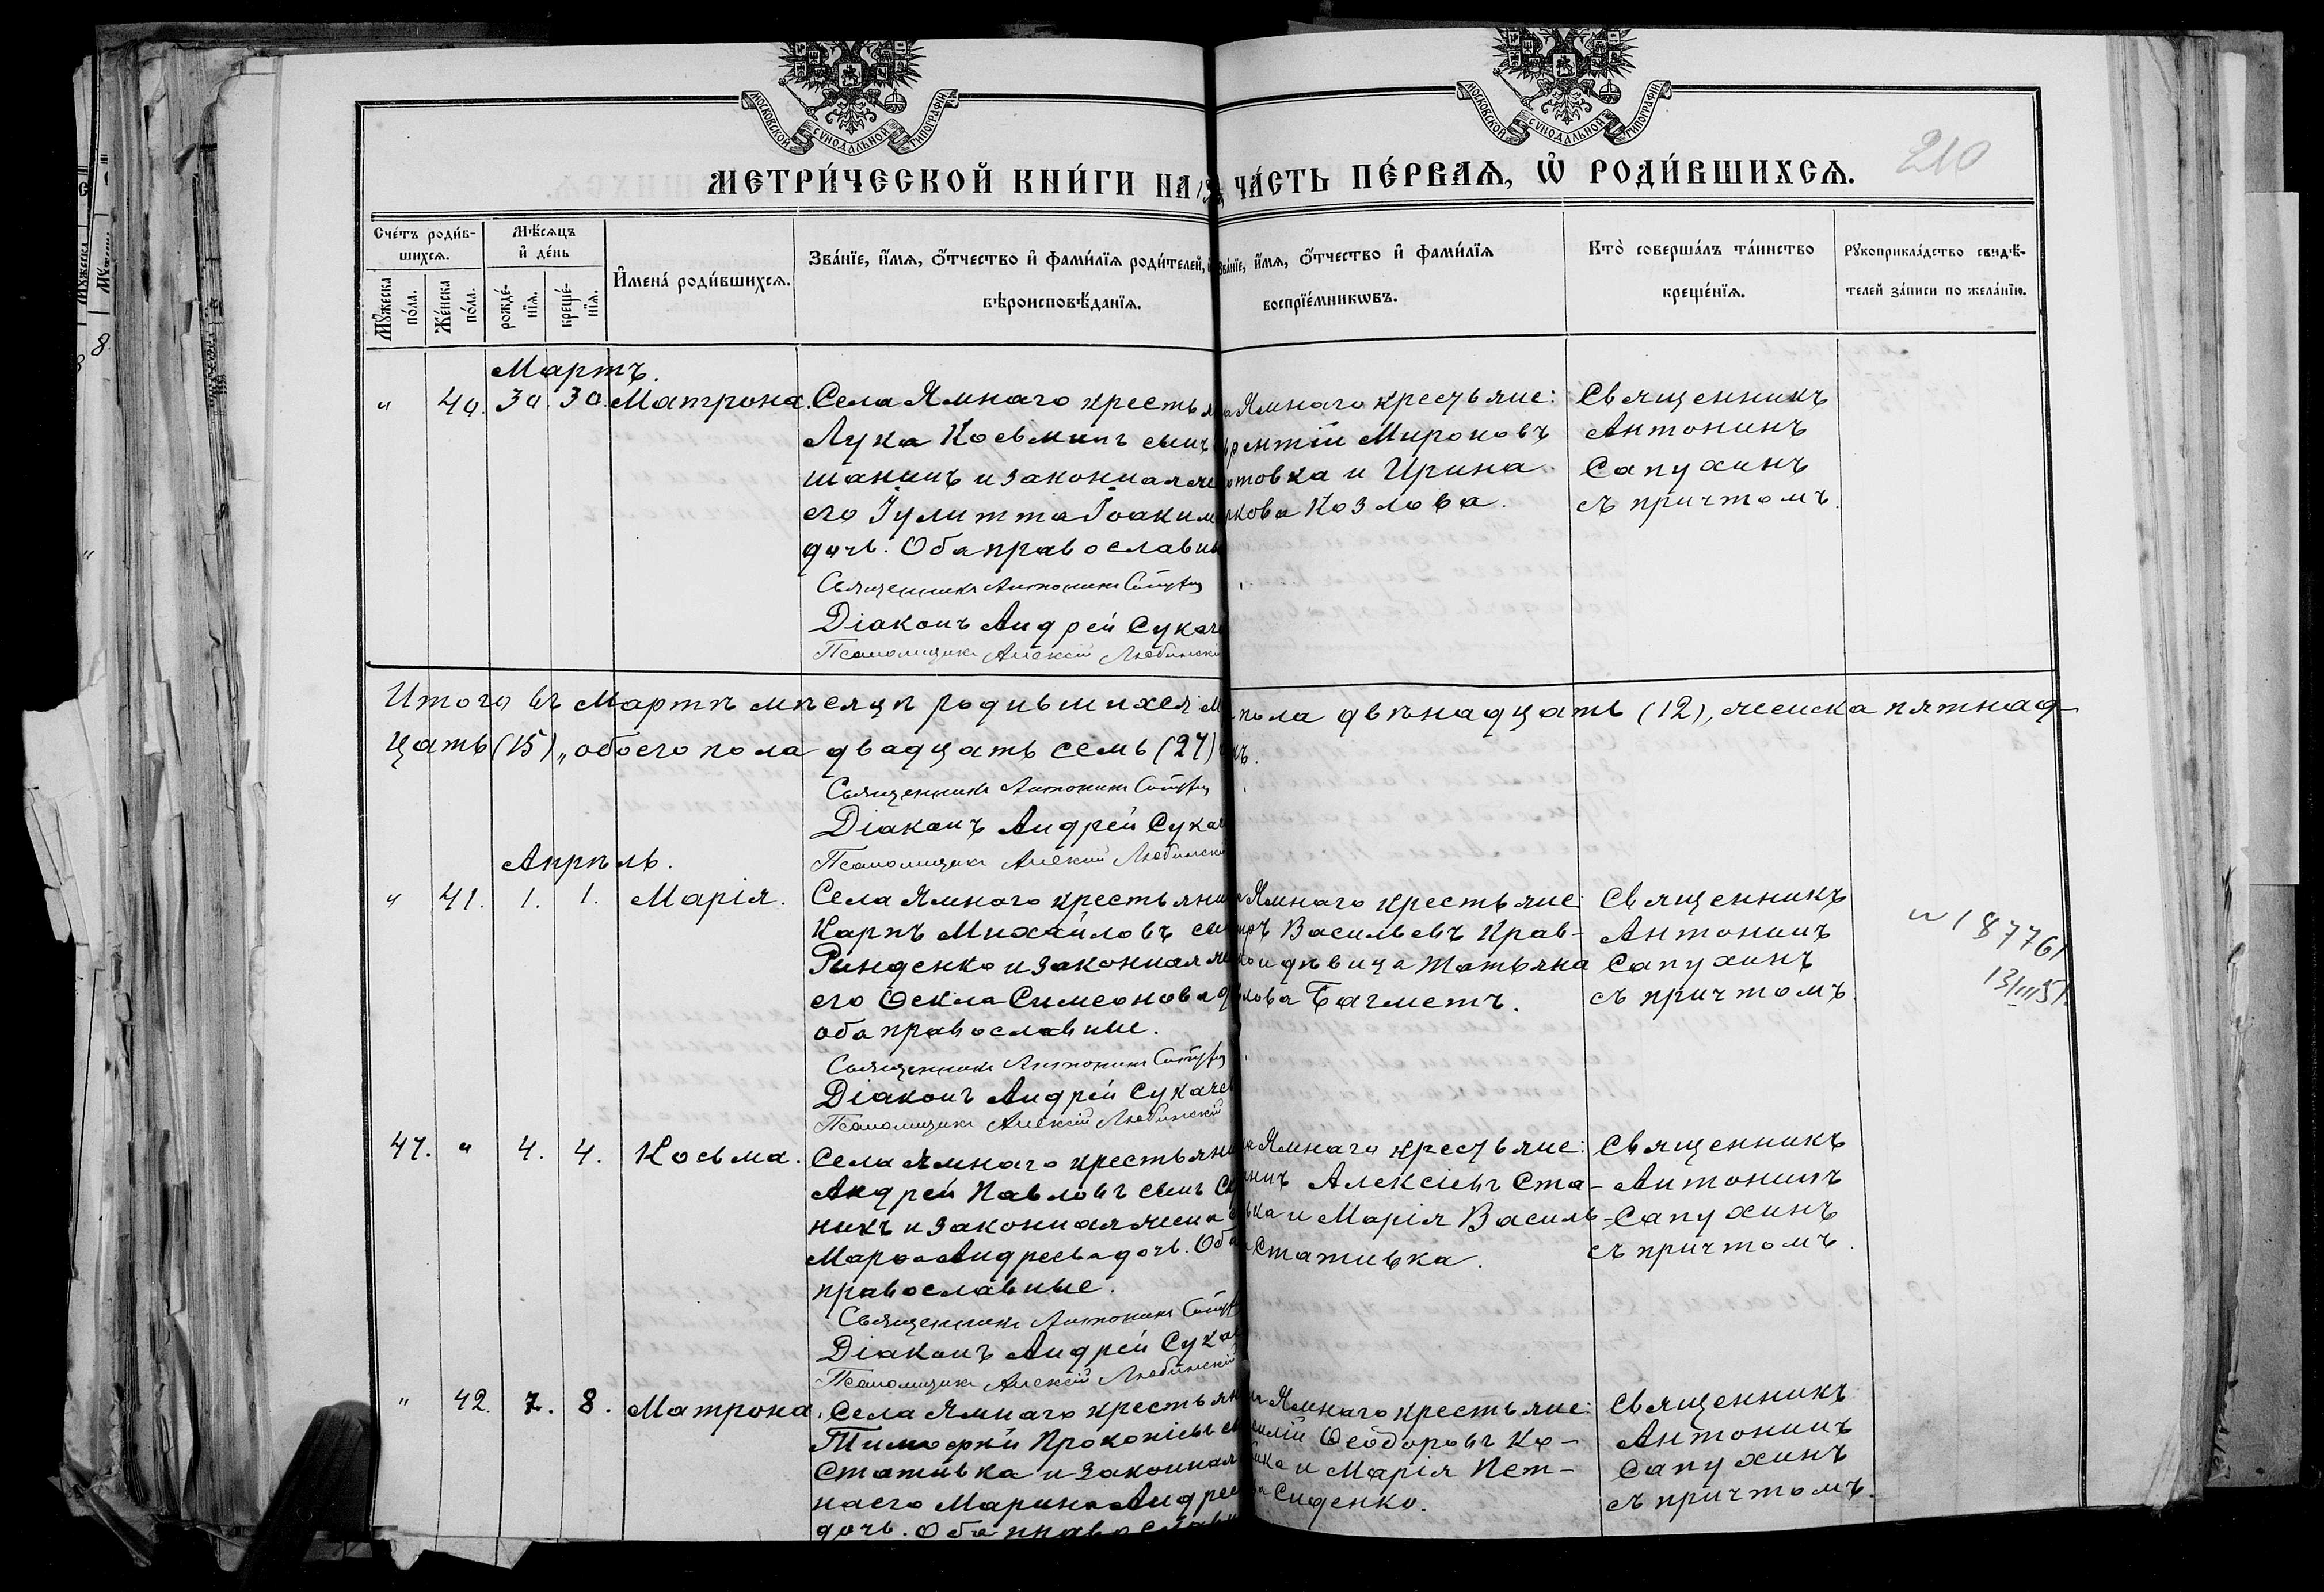 МОСКОВСКОЙ СѴНОДАЛЬНОЙ ТИПОГРАФІИ
МОСКОВСКОЙ СѴНОДАЛЬНОЙ ТИПОГРАФІИ
210
МЕТРИ́ЧЕСКОЙ КНИ́ГИ НА
ЧА́СТЬ ПЕ́РВАѦ, Ѡ҆ РОДИ́ВШИХСѦ.
Сче́тъ роди́в-
шихсѧ.
Мѣ́сѧцъ
и҆ де́нь
Мꙋ́жеска по́ла.
Же́нска по́ла.
рожде́-нїѧ.
креще́-нїѧ.
И҆мена̀ роди́вшихсѧ.
Зва́нїе, и҆́мѧ, ѻ҆́тчество и҆ фами́лїѧ роди́телей,
вѣроисповѣ́данїѧ.
Зва́нїе, и҆́мѧ, ѻ҆́тчество и҆ фами́лїѧ
воспрїе́мникѡвъ.
Кто̀ соверша́лъ та́инство
креще́нїѧ.
Рꙋкоприкла́дство свидѣ́-
телей за́писи по жела́нїю.
Мартъ.
" 40. 30. 30. Матрона.
Села Ямнаго крестья
Лука Косьминъ сынъ
шанинъ и законная же
его Іулитта Іоаким
дочь. Оба православны
Священникъ Антонинъ Сапух
Діаконъ Андрей Сукаче
Псаломщикъ Алексій Любинскій
Ямнаго крестьяне:
рентій Мироновъ
товка и Ирина
кова Козлова.
Священникъ
Антонинъ
Сапухинъ
съ причтомъ.
Итого въ Мартѣ мѣсяцѣ родившихся: м пола двѣнадцать (12), женска пятнад-
цать (15), обоего пола двадцать семь (27)
Священникъ Антонинъ Сапух
Діаконъ Андрей Сукач
Псаломщикъ Алексій Любинскій
Апрѣль.
" 41. 1. 1. Марія.
Села Ямнаго крестьянин
Карпъ Михайловъ сын
Рынденко и законная же
его Ѳекла Симеонова д
оба православные.
Священникъ Антонинъ Сапух
Діаконъ Андрей Сукаче
Псаломщикъ Алексій Любинскій
Ямнаго крестьяне:
Васильевъ Крав-
и дѣвица Татьяна
лова Багметъ.
Священникъ
Антонинъ
Сапухинъ
съ причтомъ.
N 187761
13/III 51
47. " 4. 4. Косьма.
Села Ямнаго крестьяни
Андрей Павловъ сынъ Ск
никъ и законная жена
Марѳа Андреева дочь. Оба
православные.
Священникъ Антонинъ Сапух
Діаконъ Андрей Сукач
Псаломщикъ Алексій Любинскій
Ямнаго крестьяне:
Алексіевъ Ста-
вка и Марія Василь-
Стативка.
Священникъ
Антонинъ
Сапухинъ
съ причтомъ.
" 42. 7. 8. Матрона.
Села Ямнаго крестьян
Тимоѳей Прокопіевъ сы
Стативка и законная
на его Марина Андрее
дочь. Оба православн
Ямнаго крестьяне:
Ѳеодоровъ Ко-
и Марія Пет-
Сиденко.
Священникъ
Антонинъ
Сапухинъ
съ причтомъ.